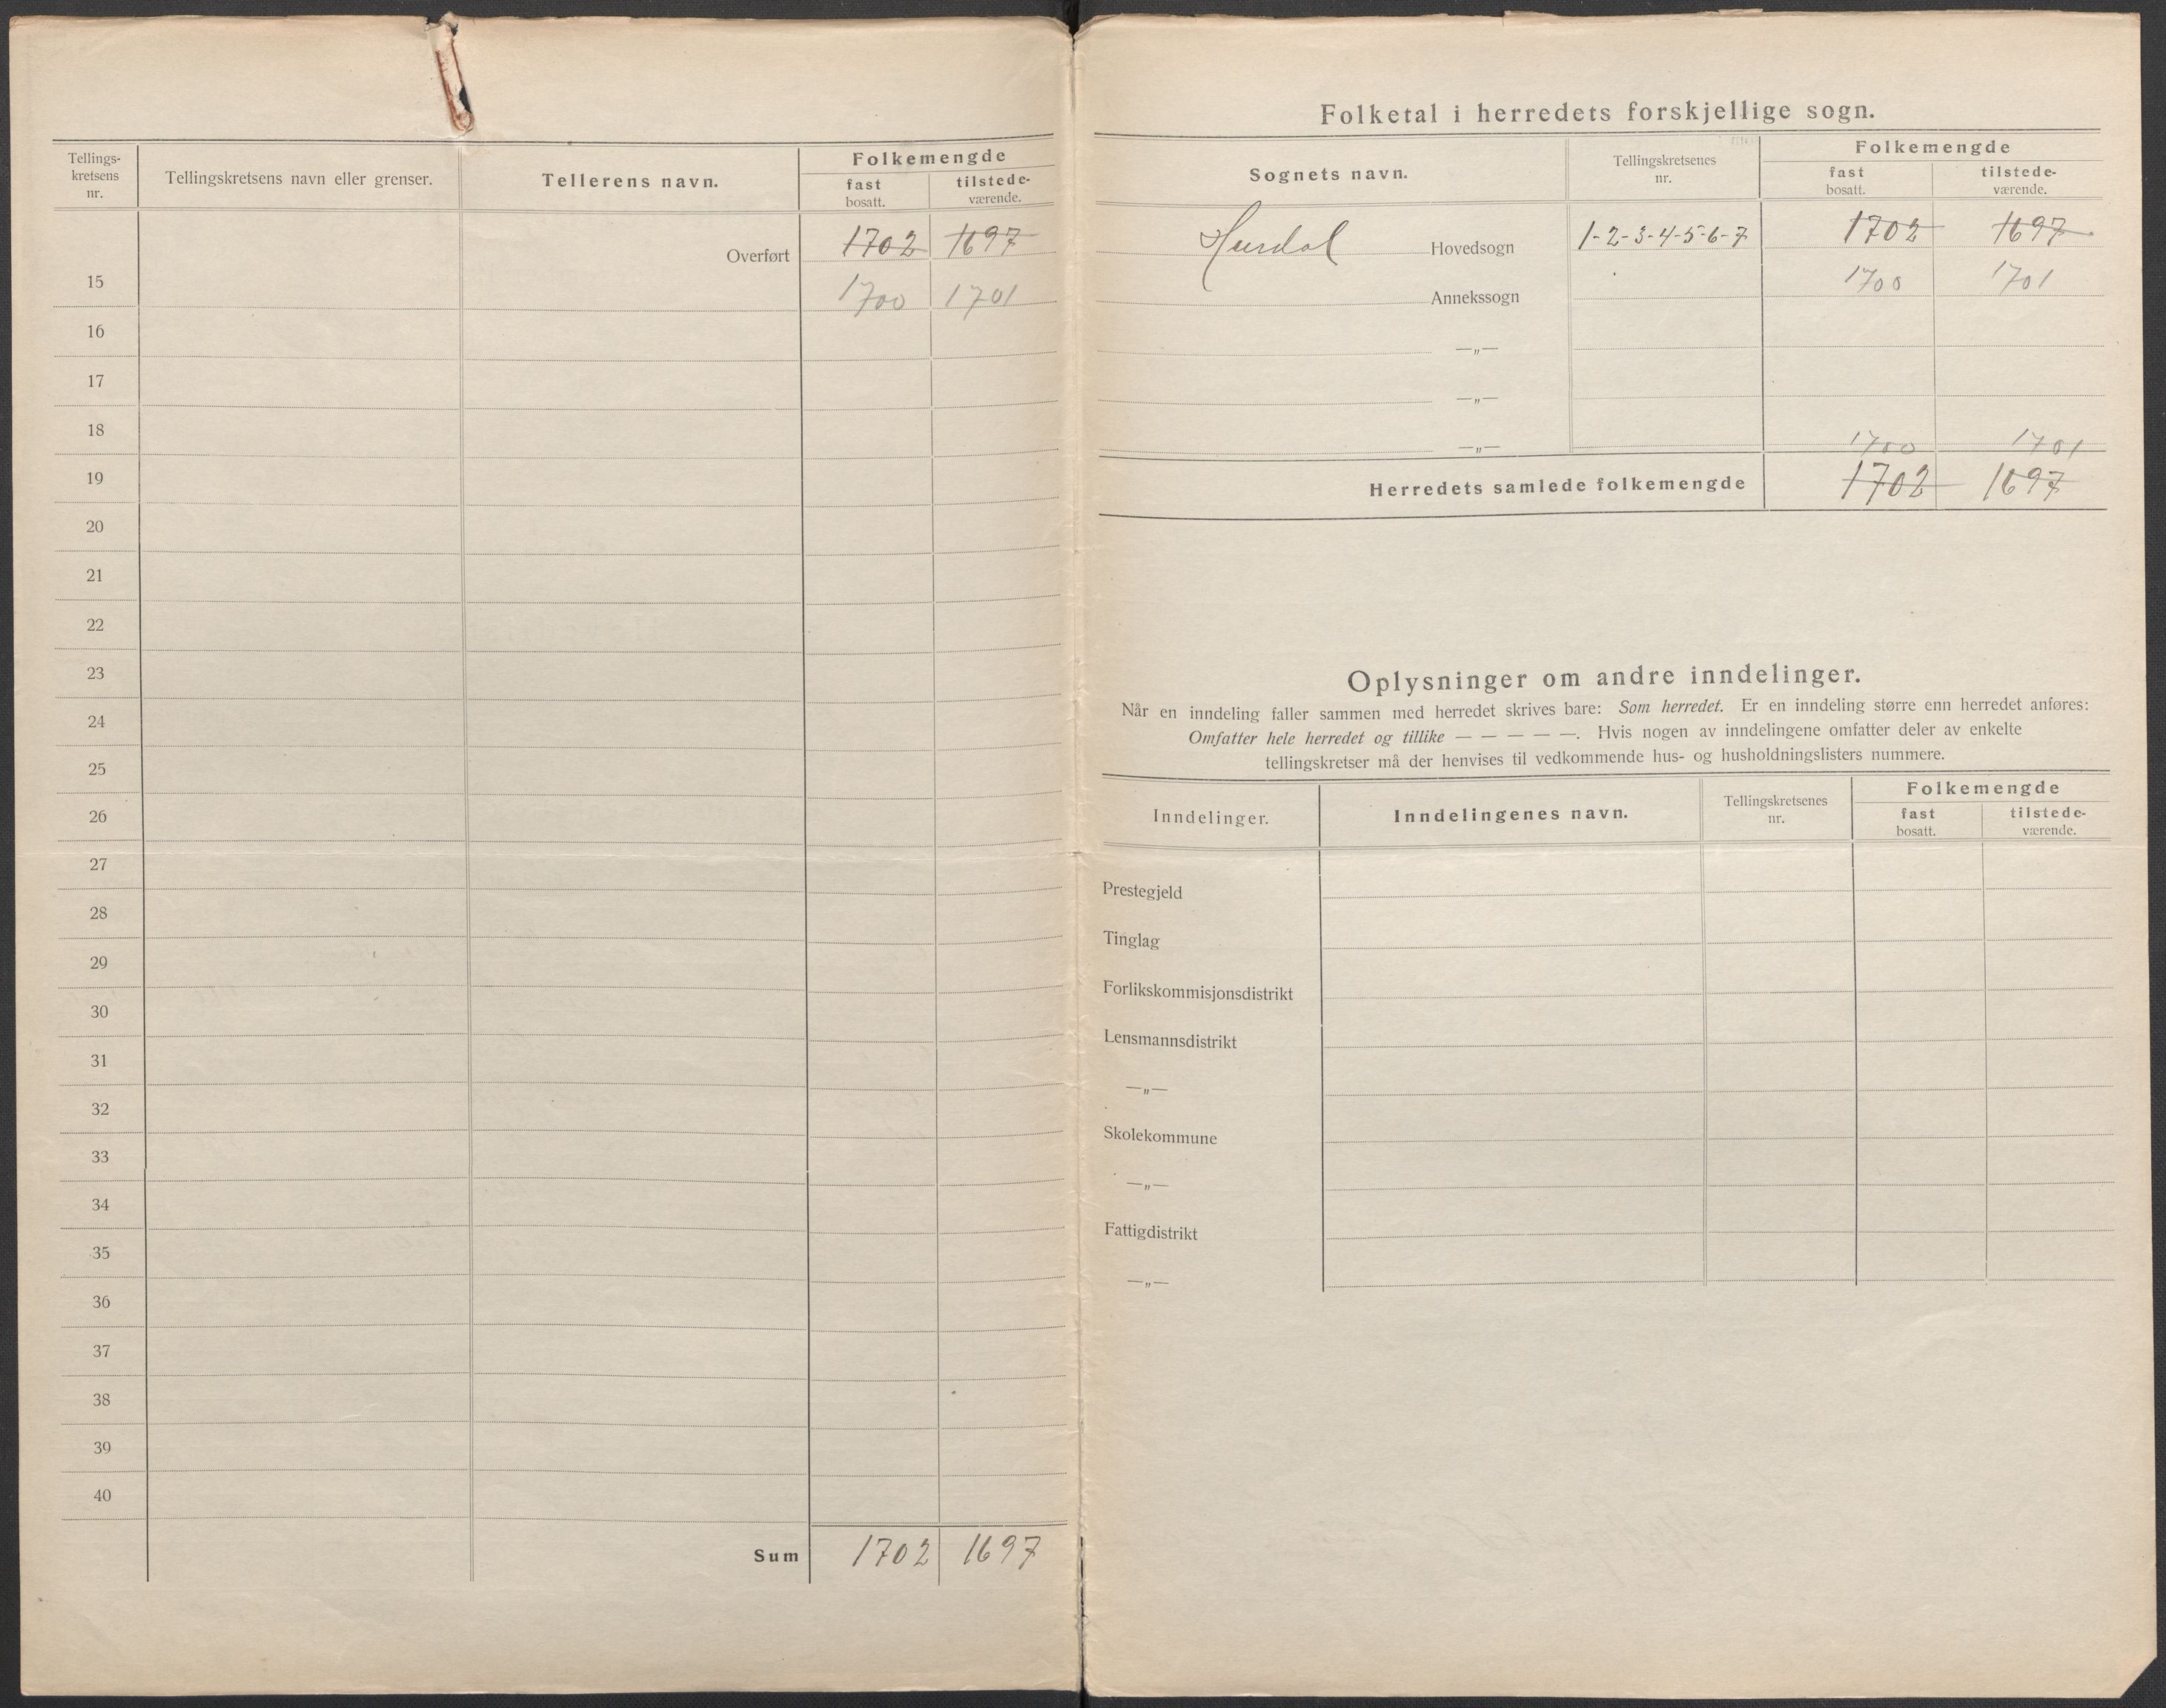 Tellings-
kretsens
nr.
Tellingskretsens navn eller grenser.
Tellerens navn.
Folkemengde
fast
bosatt.
tilstede-
værende.
Overført 1702 1697
15 1700 1701
16
17
18
19
20
21
22
23
24
25
26
27
28
29
30
31
32
33
34
35
36
37
38
39
40
Sum 1702 1697
Folketal i herredets forskjellige sogn.
Sognets navn.
Tellingskretsenes
nr.
Folkemengde
fast
bosatt.
tilstede-
værende.
Hurdal Hovedsogn 1-2-3-4-5-6-7 1702 1697
Annekssogn 1700 1701
—„—
—„—
—„— 1700 1701
Herredets samlede folkemengde 1702 1697
Oplysninger om andre inndelinger.
Når en inndeling faller sammen med herredet skrives bare: Som herredet. Er en inndeling større enn herredet anføres:
Omfatter hele herredet og tillike — — — — —. Hvis nogen av inndelingene omfatter deler av enkelte
tellingskretser må der henvises til vedkommende hus- og husholdningslisters nummere.
Inndelinger.
Inndelingenes navn.
Tellingskretsenes
nr.
Folkemengde
fast
bosatt.
tilstede-
værende.
Prestegjeld
Tinglag
Forlikskommisjonsdistrikt
Lensmannsdistrikt
—„—
Skolekommune
—„—
Fattigdistrikt
—„—